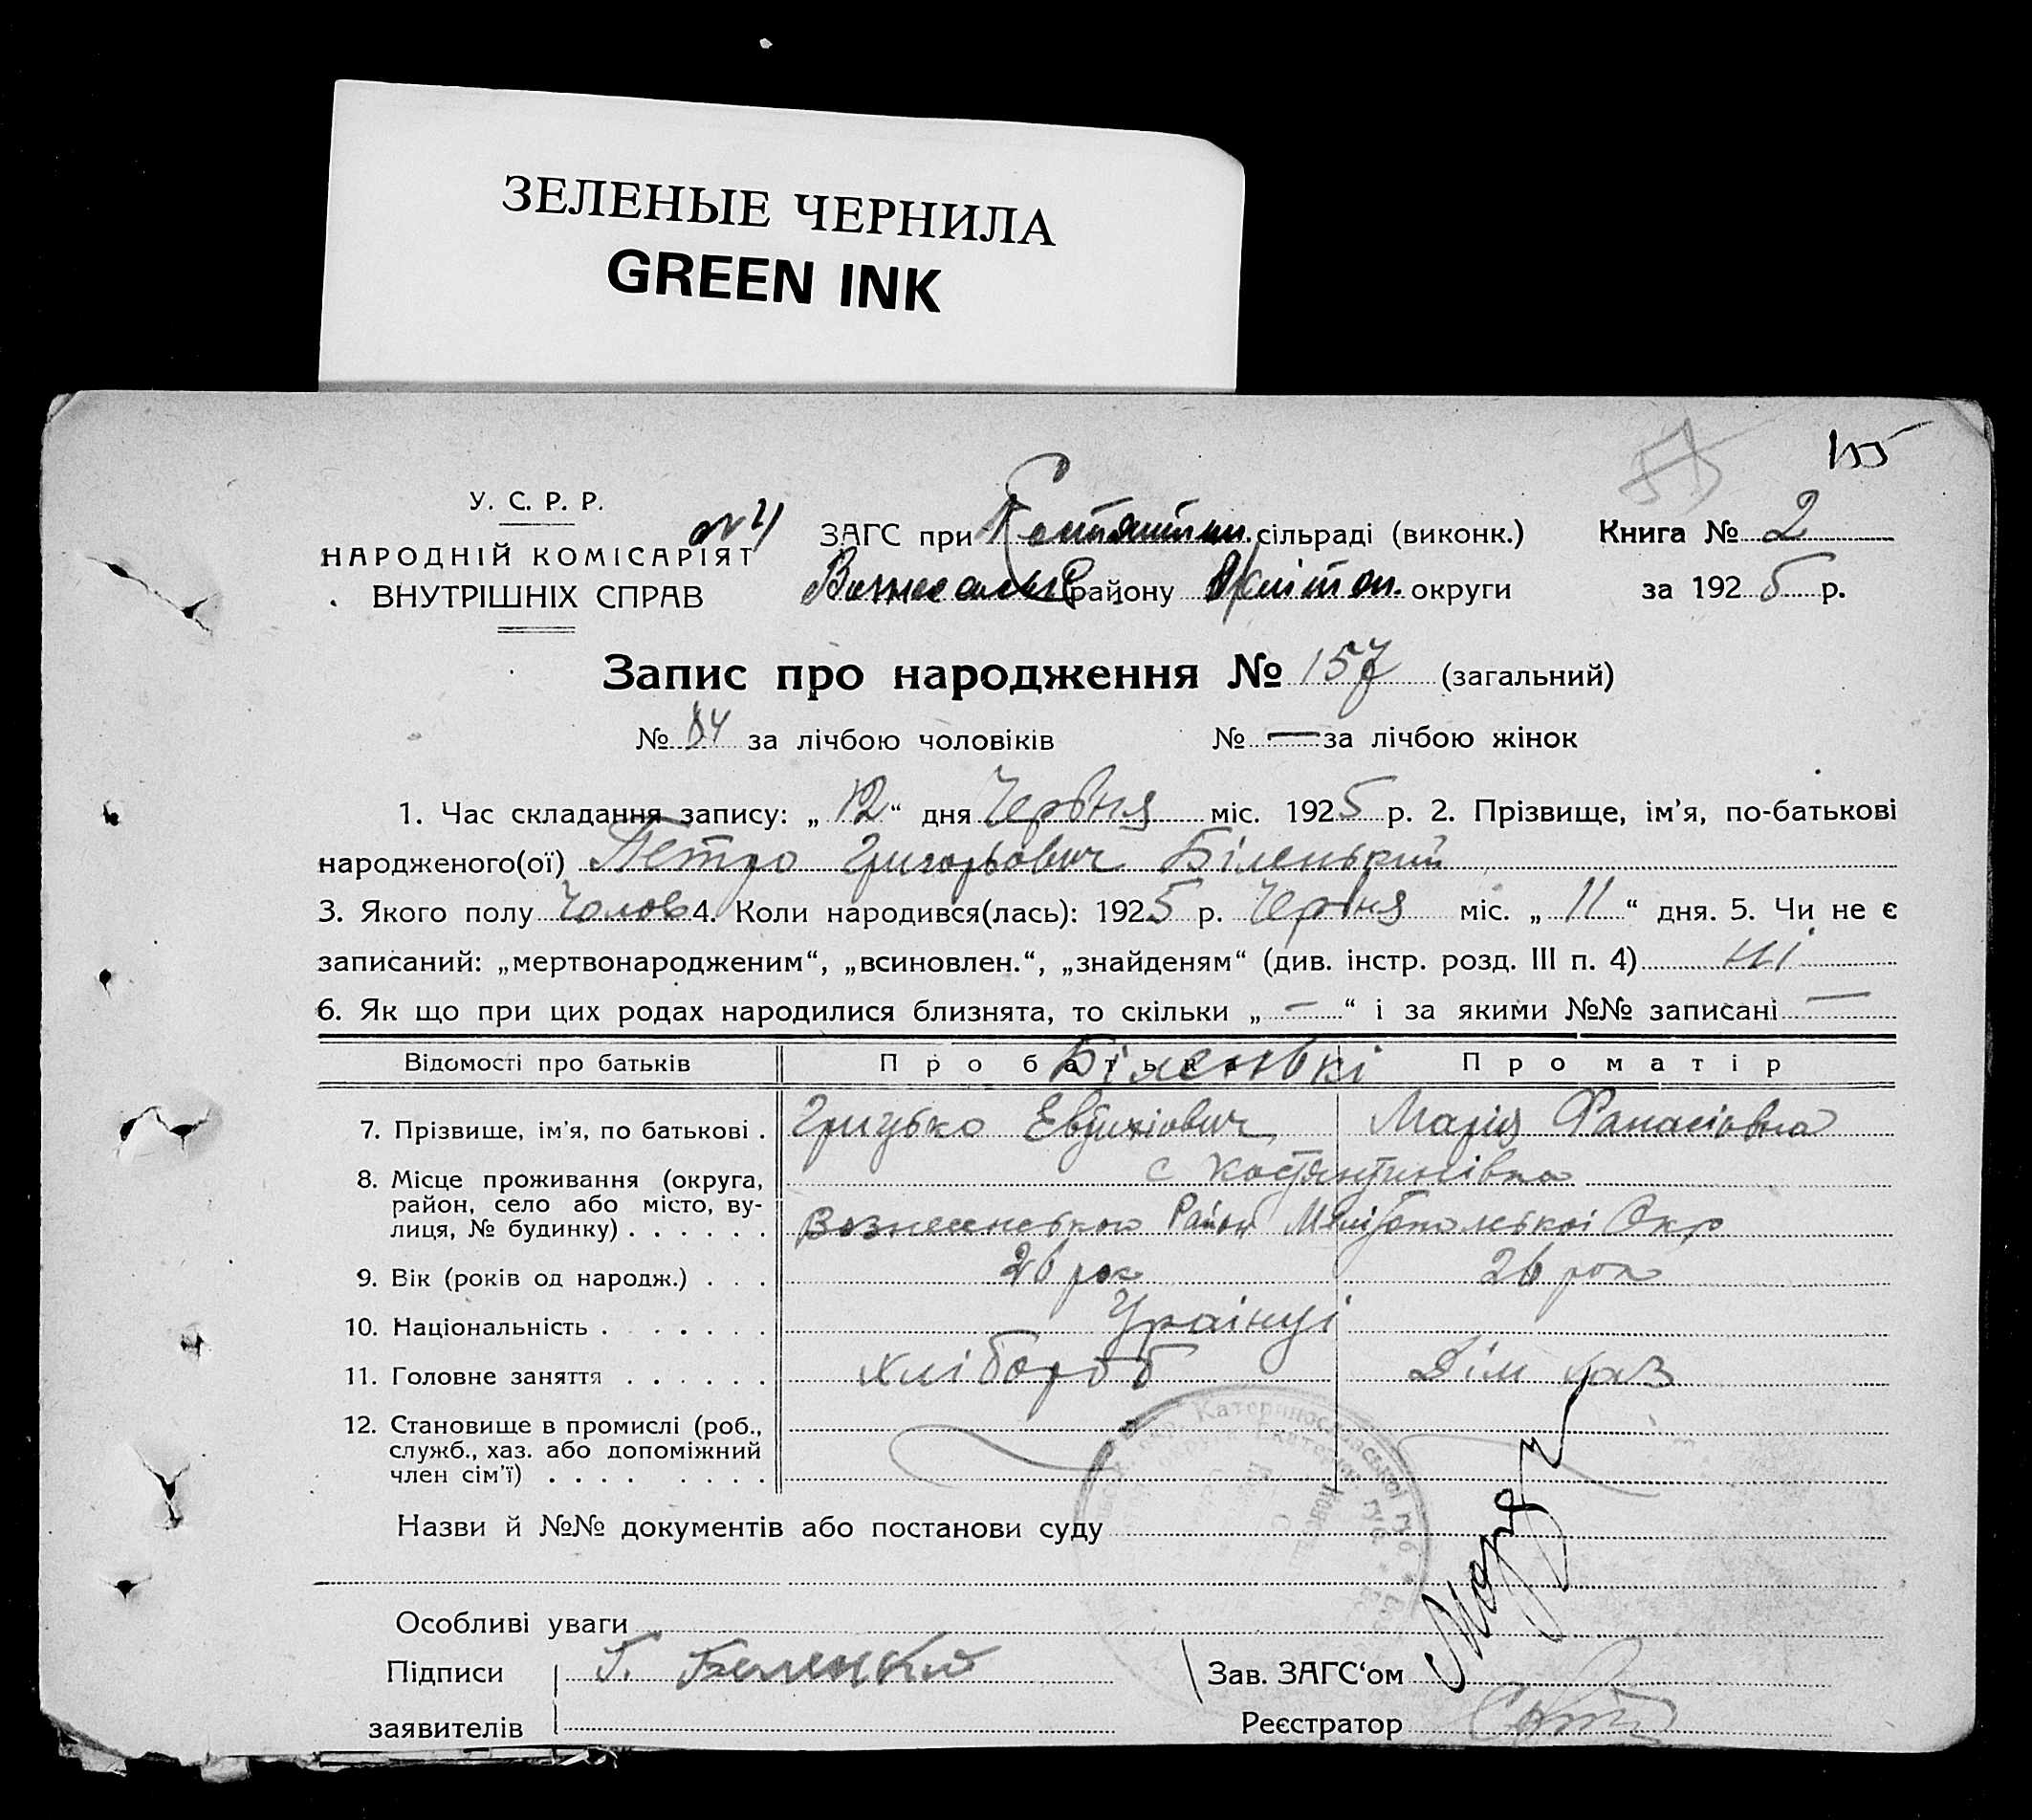 ЗЕЛЕНЫЕ ЧЕРНИЛА
GREEN INK
155
У. С. Р. Р.
НАРОДНІЙ КОМІСАРІЯТ
ВНУТРІШНІХ СПРАВ
ЗАГС при Костянтин. сільраді (виконк.)
району округи
Книга № 2
за 1925 р.
Запис про народження № 157 (загальний)
№ 84 за лічбою чоловіків № — за лічбою жінок
1. Час складання запису: „12“ дня Червня міс. 1925 р. 2. Прізвище, ім'я, по-батькові
народженого(ої) Петро Григорьович Біленький
3. Якого полу Чолов 4. Коли народився(лась): 1925 р. Червня міс. „11“ дня. 5. Чи не є
записаний: „мертвонародженим“, „всиновлен.“, „знайденям“ (див. інстр. розд. III п. 4) ні
6. Як що при цих родах народилися близнята, то скільки „—“ і за якими №№ записані —
Відомості про батьків Про батька Про матір
Біленькі
7. Прізвище, ім'я, по батькові . Грицько Евтихіович Марія Фанасіовна
8. Місце проживання (округа, с Костянтинівка
район, село або місто, ву-
лиця, № будинку) . . . . . . Вознесенського Район Мелітопольскоі Окр
9. Вік (років од народж.) . . . 26 рок 26 рок
10. Національність . . . . . . Украінці
11. Головне заняття . . . . . . хлібороб Дім хаз
12. Становище в промислі (роб.,
служб., хаз. або допоміжний
член сім'ї) . . . . . . . .
Назви й №№ документів або постанови суду
Особливі уваги
Підписи
заявителів
Г. Беленкий
Зав. ЗАГС‘ом
Реєстратор